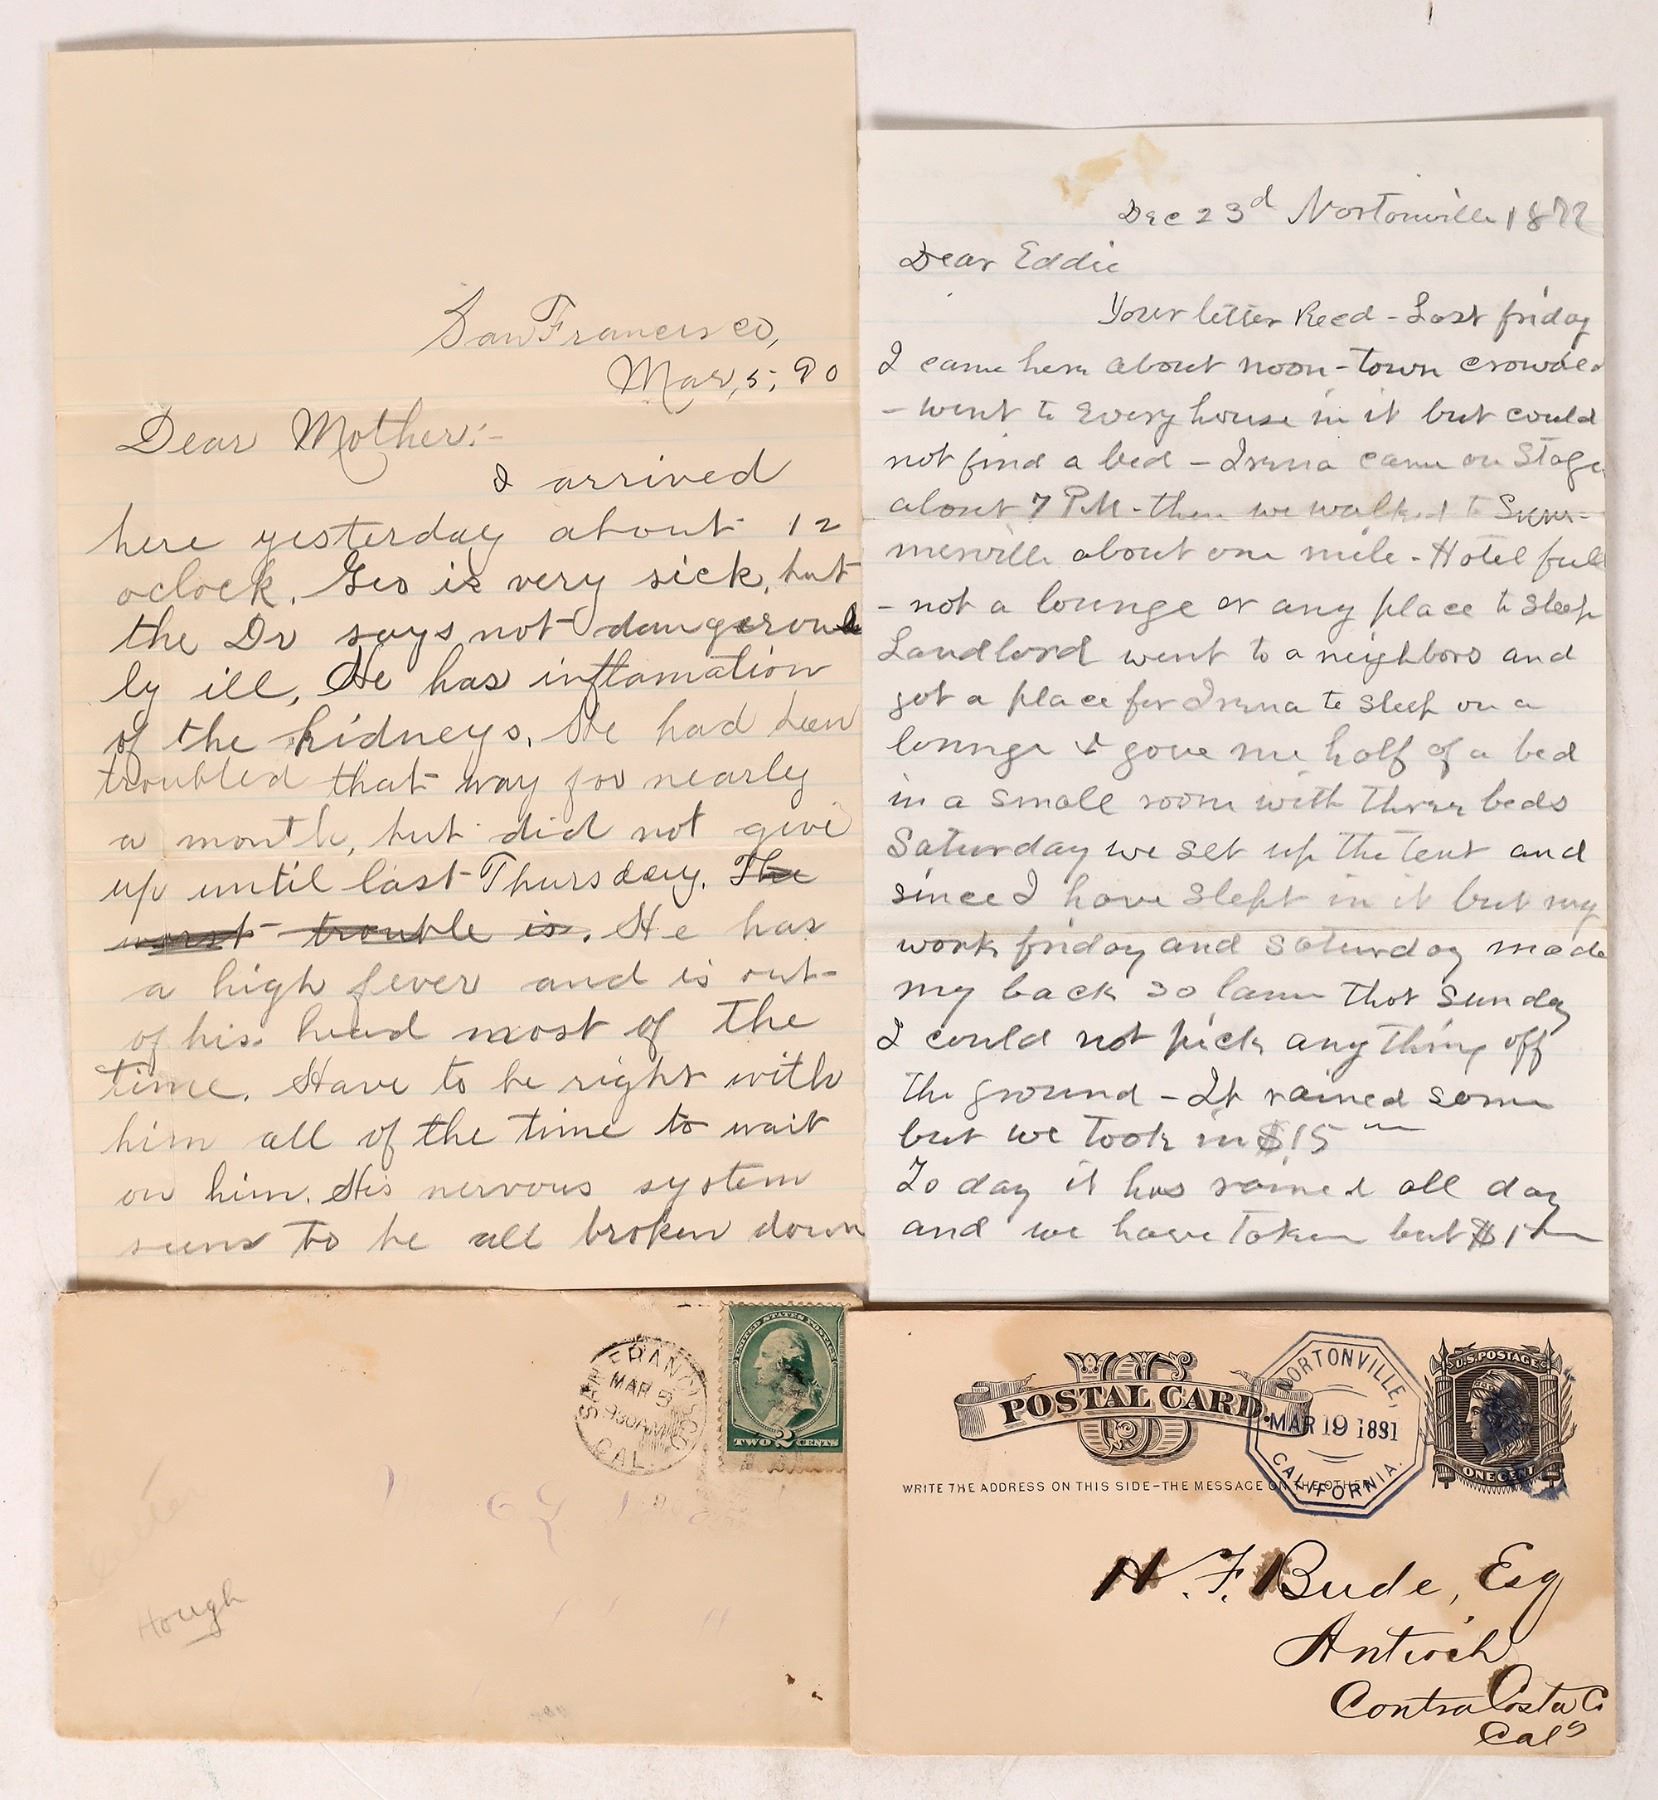 San Francisco,
Mar, 5, 90
Dear Mother:-
I arrived
here yesterday about 12
oclock. Geo is very sick, but
the Dr says not dangerous
ly ill, He has inflamation
of the kidneys. He had been
troubled that way for nearly
a month, but did not give
up until last Thursday. The
worst trouble is. He has
a high fever and is out
of his head most of the
time. Have to be right with
him all of the time to wait
on him. His nervous system
seems to be all broken down
Dec 23d Nortonville 18
Dear Eddie
Your letter Recd - Last friday
I came here about noon - town crowded
- went to every house in it but could
not find a bed - Irena came on Stage
about 7 PM - then we walked to Sum-
mersville about one mile - Hotel full
- not a lounge or any place to sleep
Landlord went to a neighbors and
got a place for Irena to sleep on a
lounge & gave me half of a bed
in a small room with three beds
Saturday we set up the tent and
since I have slept in it but my
work friday and Saturday made
my back so lame that Sunday
I could not pick anything off
the ground - It rained some
but we took in $15
To day it has rained all day
and we have taken but $1
SAN FRANCISCO
MAR 5
930AM
CAL.
UNITED STATES POSTAGE
TWO 2 CENTS
Hough
US
POSTAL CARD.
WRITE THE ADDRESS ON THIS SIDE-THE MESSAGE ON THE OTHER
NORTONVILLE,
MAR 19 1881
CALIFORNIA.
U.S. POSTAGE
ONE CENT
H. F. Bude, Esq
Antioch
Contra Costa Co
Cala